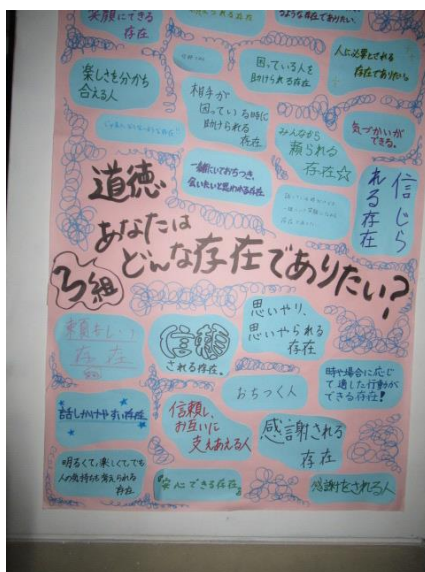 笑顔にできる
存在
ような存在でありたい。
人に必要とされる
存在でありたい。
楽しさを分かち
合える人
困っている人を
助けられる存在
相手が
困っている時に
助けられる
存在
みんなから
頼られる
存在☆
気づかいが
できる。
一緒にいておちつき、
会いたいと思われる存在
信じら
れる存在
道徳
あなたは
どんな存在でありたい?
3組
思いやり、
思いやられる
存在
信頼
される存在。
おちつく人
時や場合に応じ
て適した行動が
できる存在!
話しかけやすい存在
信頼し、
お互いに
支えあえる人
感謝される
存在
明るくて、楽しくて、でも
人の気持ちも考えられる
存在
安心できる存在
感謝をされる人